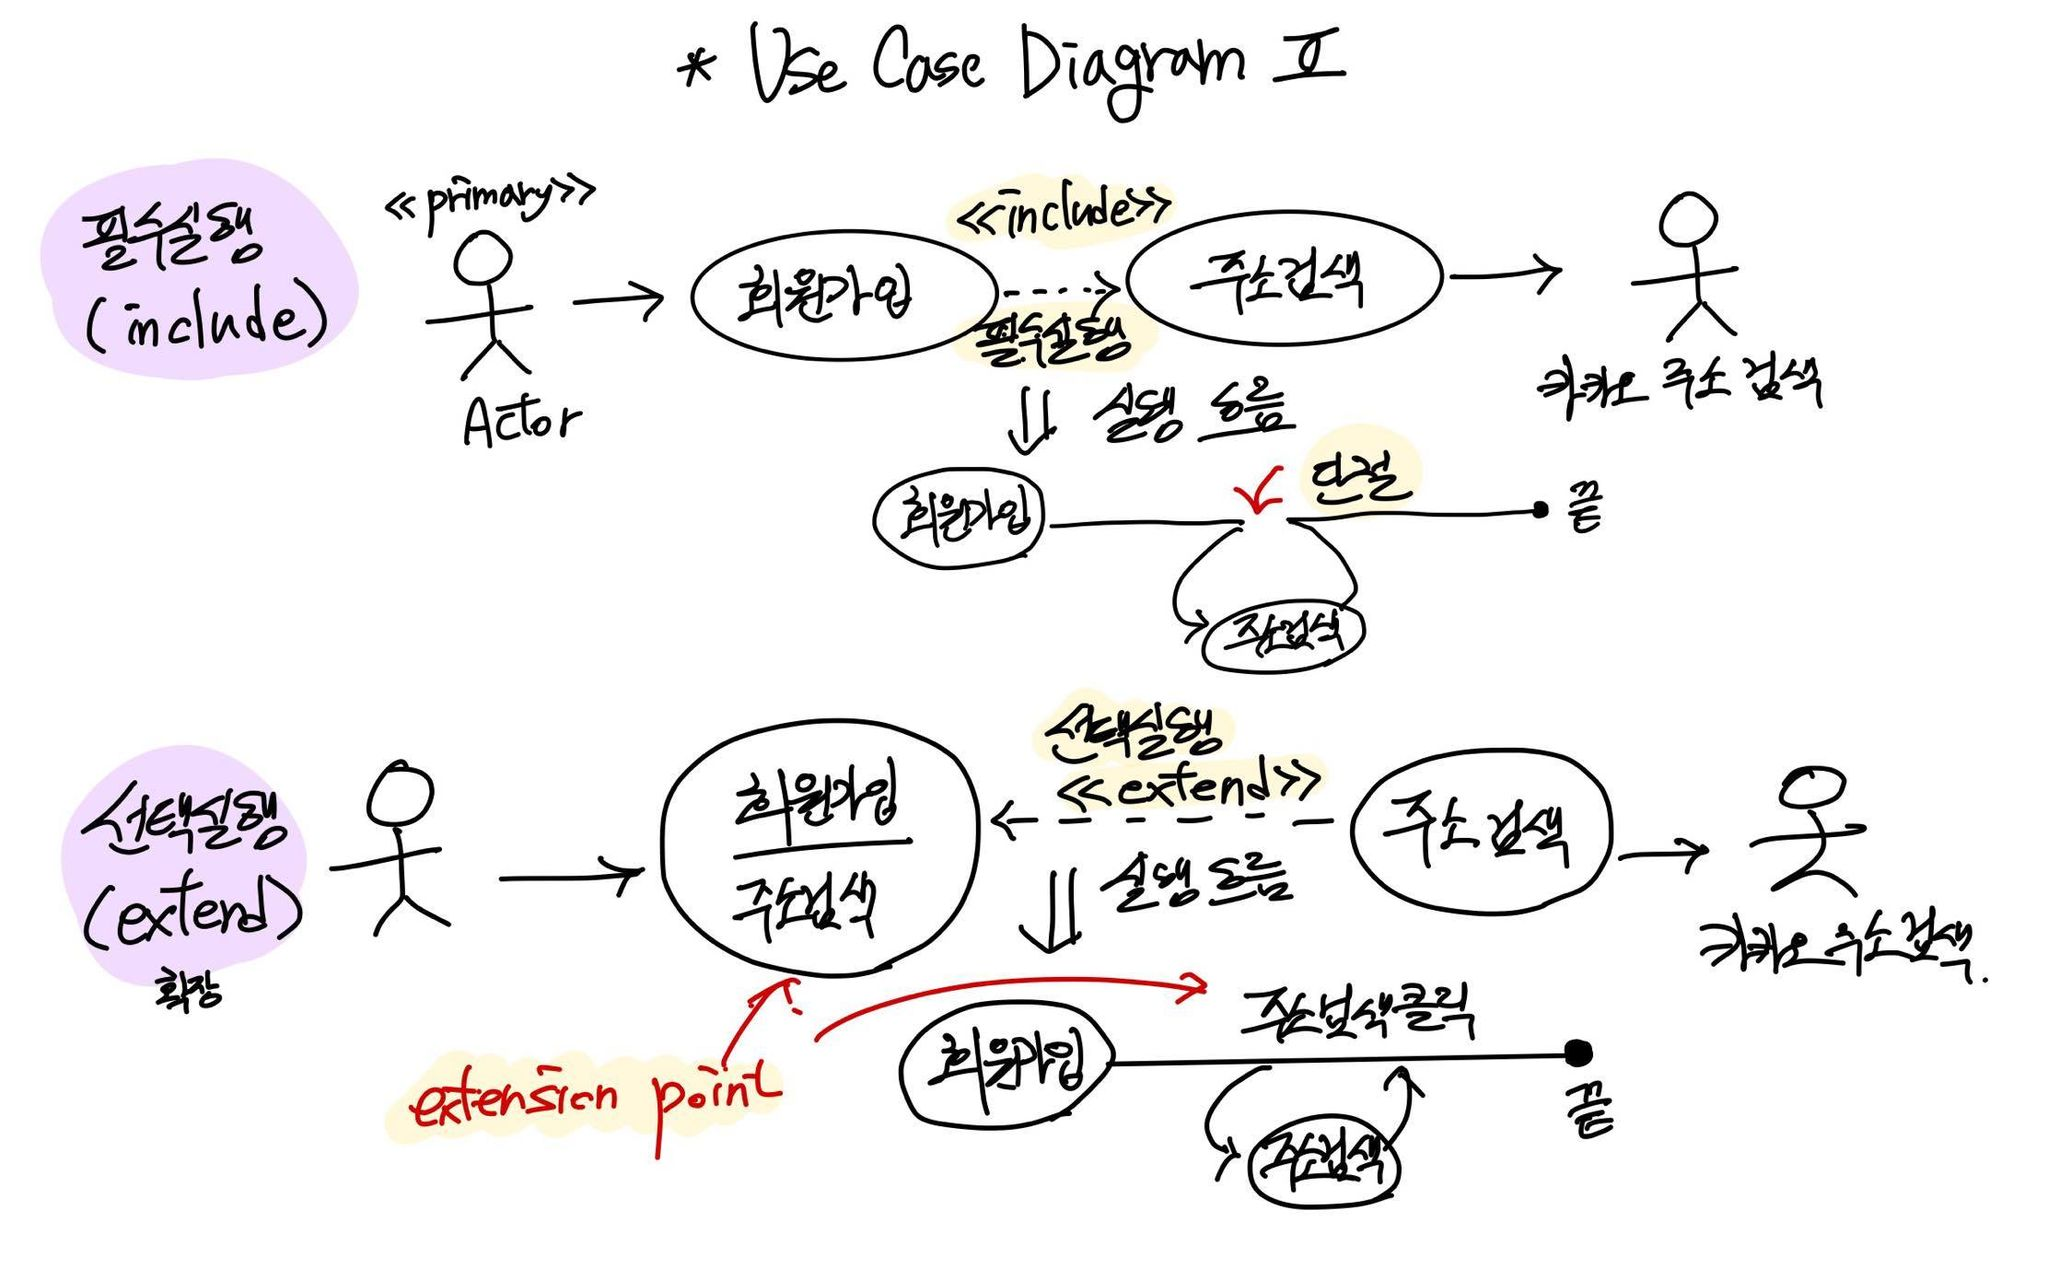 * Use Case Diagram II
필수실행
(include)
<<primary>>
Actor
회원가입
<<include>>
필수실행
주소검색
카카오 주소 검색
실행 흐름
회원가입
단절
끝
주소검색
선택실행
(extend)
확장
회원가입
주소검색
선택실행
<<extend>>
주소검색
카카오 주소검색.
실행 흐름
extension point
회원가입
주소검색클릭
끝
주소검색